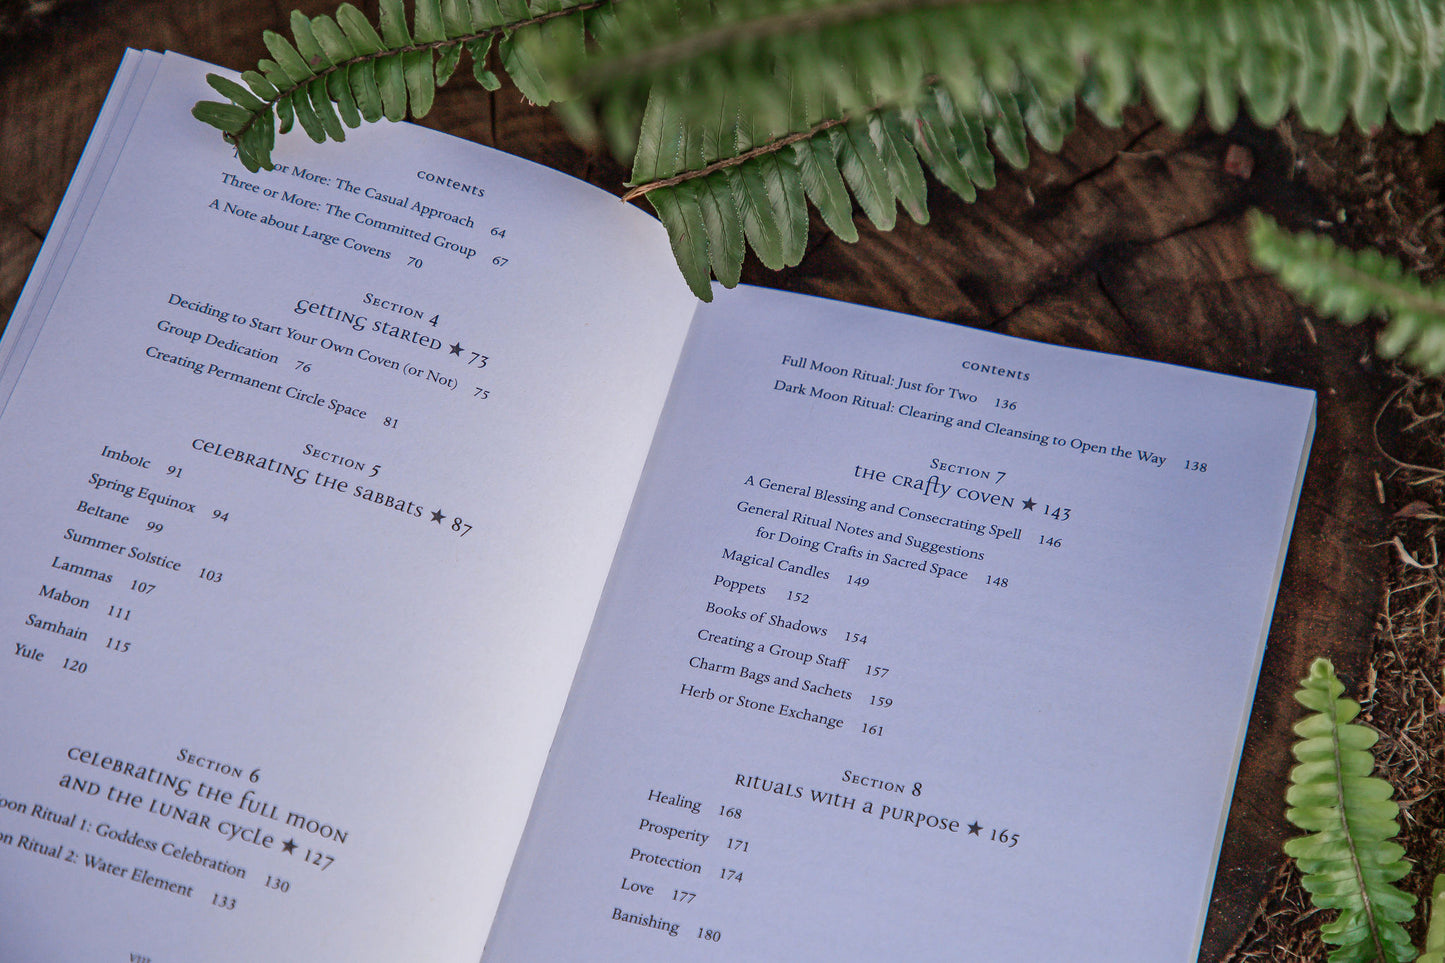 CONTENTS
or More: The Casual Approach 64
Three or More: The Committed Group 67
A Note about Large Covens 70
Section 4
Getting Started ★ 73
Deciding to Start Your Own Coven (or Not) 75
Group Dedication 76
Creating Permanent Circle Space 81
Section 5
Celebrating the Sabbats ★ 87
Imbolc 91
Spring Equinox 94
Beltane 99
Summer Solstice 103
Lammas 107
Mabon 111
Samhain 115
Yule 120
Section 6
Celebrating the Full Moon
and the Lunar Cycle ★ 127
Ritual 1: Goddess Celebration 130
Ritual 2: Water Element 133
VIII
CONTENTS
Full Moon Ritual: Just for Two 136
Dark Moon Ritual: Clearing and Cleansing to Open the Way 138
Section 7
The Crafty Coven ★ 143
A General Blessing and Consecrating Spell 146
General Ritual Notes and Suggestions
for Doing Crafts in Sacred Space 148
Magical Candles 149
Poppets 152
Books of Shadows 154
Creating a Group Staff 157
Charm Bags and Sachets 159
Herb or Stone Exchange 161
Section 8
Rituals with a Purpose ★ 165
Healing 168
Prosperity 171
Protection 174
Love 177
Banishing 180